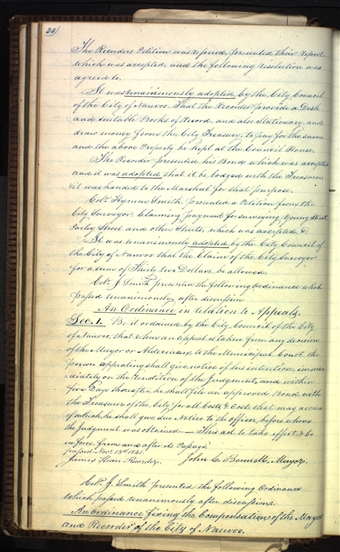 20
The Recorders Petition was refered, presented their report
which was accepted, and the following resolution was
agreed to.
It was unanimously adopted, by the City Council
of the City of Nauvoo. That the Recorder provide a Desk
and suitable Books of Record, and also Stationary, and
draw money from the City Treasury, to pay for the same
and the above Property be kept at the Council House.
The Recorder presented his Bond which was accepted
and it was adopted that it be lodged with the Treasurer
it was handed to the Marshal for that purpose.
Col. Hyrum Smith presented a Petition from the
City Surveyor, Claiming payment for surveying Young Street
Parley Street and other Streets, which was accepted, &
It was unanimously adopted by the City Council of
the City of Nauvoo that the Claim of the City Surveyor
for a sum of Thirty two Dollars be allowed.
J. Smith presented the following Ordinance which
passed unanimously, after discussion
An Ordinance in relation to Appeals.
Sec. 1. Be it ordained by the City Council of the City
of Nauvoo, that when an appeal is taken from any decision
of the Mayor or Aldermen, to the Municipal Court, the
person appealing shall give notice of his intention, imme
diately on the rendition of the Judgment; and within
five Days thereafter, he shall file an approved Bond, with
the Treasurer of the City for all Costs that may accrue
of which he shall give due Notice to the officer, before whom
the Judgment was obtained — This act to take effect & be
in force from and after its Passage.
passed Novr. 13th 1841.
James Sloan Recorder. John C. Bennett, Mayor.
J. Smith presented the following Ordinance
which passed unanimously after discussion
An Ordinance fixing the Compensation of the Mayor
and Recorder of the City of Nauvoo.